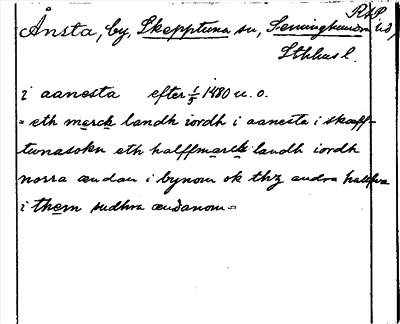 RAP
Ånsta, by, Skepptuna sn, Seminghundra hd,
Sthlms l.
i aanesta efter 1/5 1480 u. o.
= eth marck landh iordh i aanesta i skæff-
tunasokn eth halffmarck landh iordh
norra ændan i bynom ok thz andra halffva
i them sudhra ændanom =